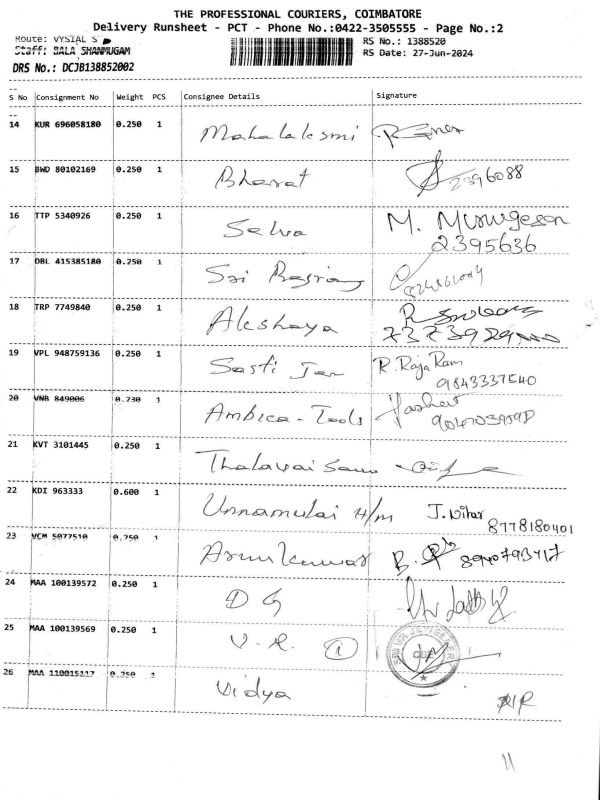 THE PROFESSIONAL COURIERS, COIMBATORE
Delivery Runsheet - PCT - Phone No.:0422-3505555 - Page No.:2
Route: VYSIAL S
Staff: BALA SHANMUGAM
DRS No.: DCJB138852002
RS No.: 1388520
RS Date: 27-Jun-2024
S No Consignment No Weight PCS Consignee Details Signature
14 KUR 696058180 0.250 1 Mahalakshmi
15 BWD 80102169 0.250 1 Bharat 2396088
16 TTP 5340926 0.250 1 Selva M. Murugesan
2395636
17 DBL 415385180 0.250 1 Sri
18 TRP 7749840 0.250 1 Akshaya
19 VPL 948759136 0.250 1 Sasti R. Raja Ram
9843337540
20 VNB 849006 0.230 1 Ambica - Tools
21 KVT 3101445 0.250 1
22 KDI 963333 0.600 1 Unnamulai H/m
8778180401
23 VCM 5077510 0.250 1 Arunkumar B.
24 MAA 100139572 0.250 1 D G
25 MAA 100139569 0.250 1 V. R. 1
26 MAA 110015117 0.250 1 Vidya
11